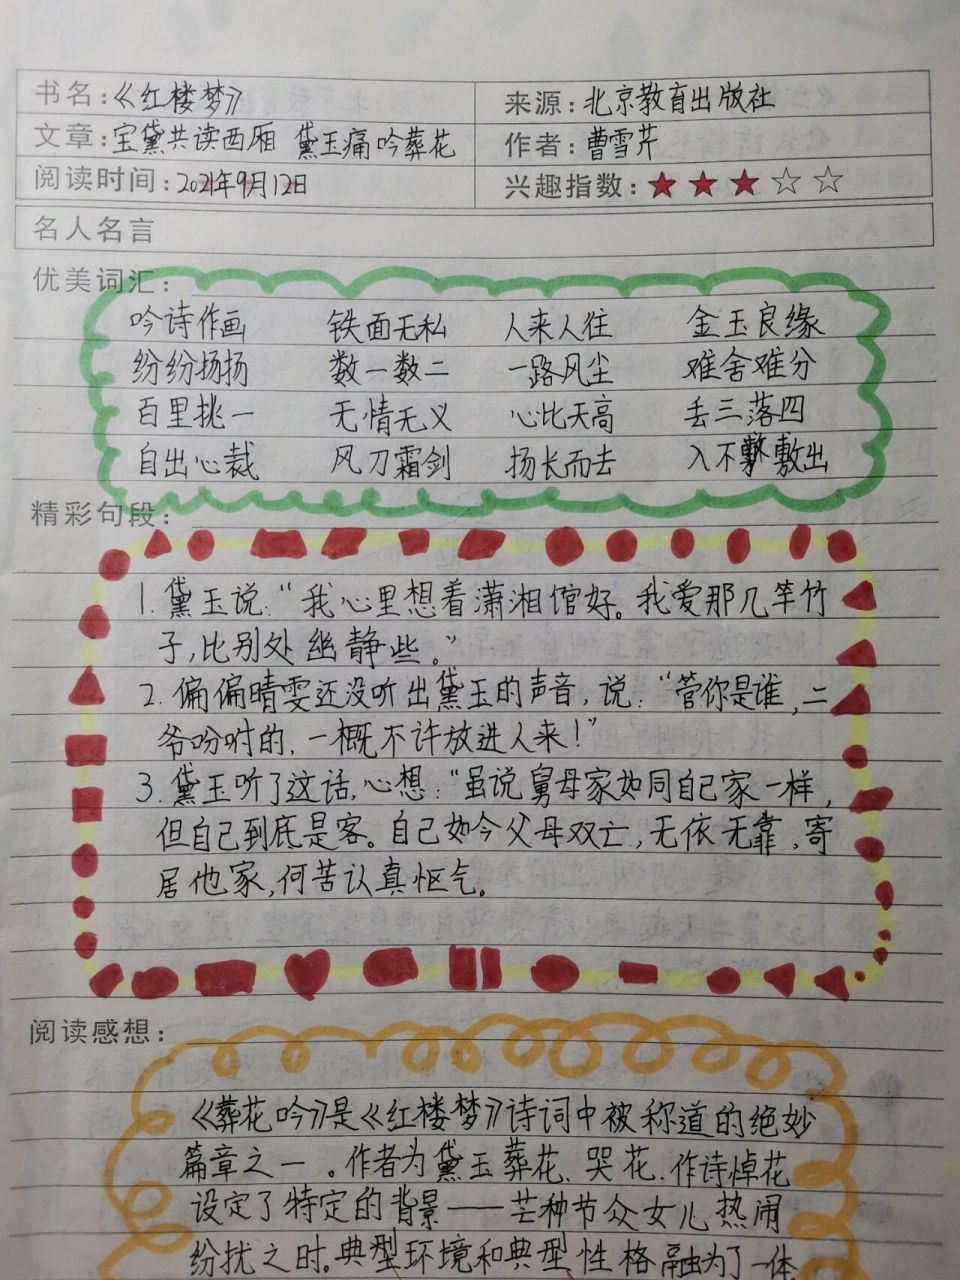 书名:《红楼梦》 来源:北京教育出版社
文章:宝黛共读西厢 黛玉痛吟葬花 作者:曹雪芹
阅读时间:2021年9月12日 兴趣指数:★★★☆☆
名人名言
优美词汇:
吟诗作画 铁面无私 人来人往 金玉良缘
纷纷扬扬 数一数二 一路风尘 难舍难分
百里挑一 无情无义 心比天高 丢三落四
自出心裁 风刀霜剑 扬长而去 入不敷出
精彩句段:
1.黛玉说:“我心里想着潇湘馆好。我爱那几竿竹
子,比别处幽静些。”
2.偏偏晴雯还没听出黛玉的声音,说:“管你是谁,二
爷吩咐的,一概不许放进人来!”
3.黛玉听了这话,心想:“虽说舅母家如同自己家一样,
但自己到底是客。自己如今父母双亡,无依无靠,寄
居他家,何苦认真怄气。
阅读感想:
《葬花吟》是《红楼梦》诗词中被称道的绝妙
篇章之一。作者为黛玉葬花、哭花、作诗悼花
设定了特定的背景——芒种节众女儿热闹
纷扰之时。典型环境和典型性格融为了一体